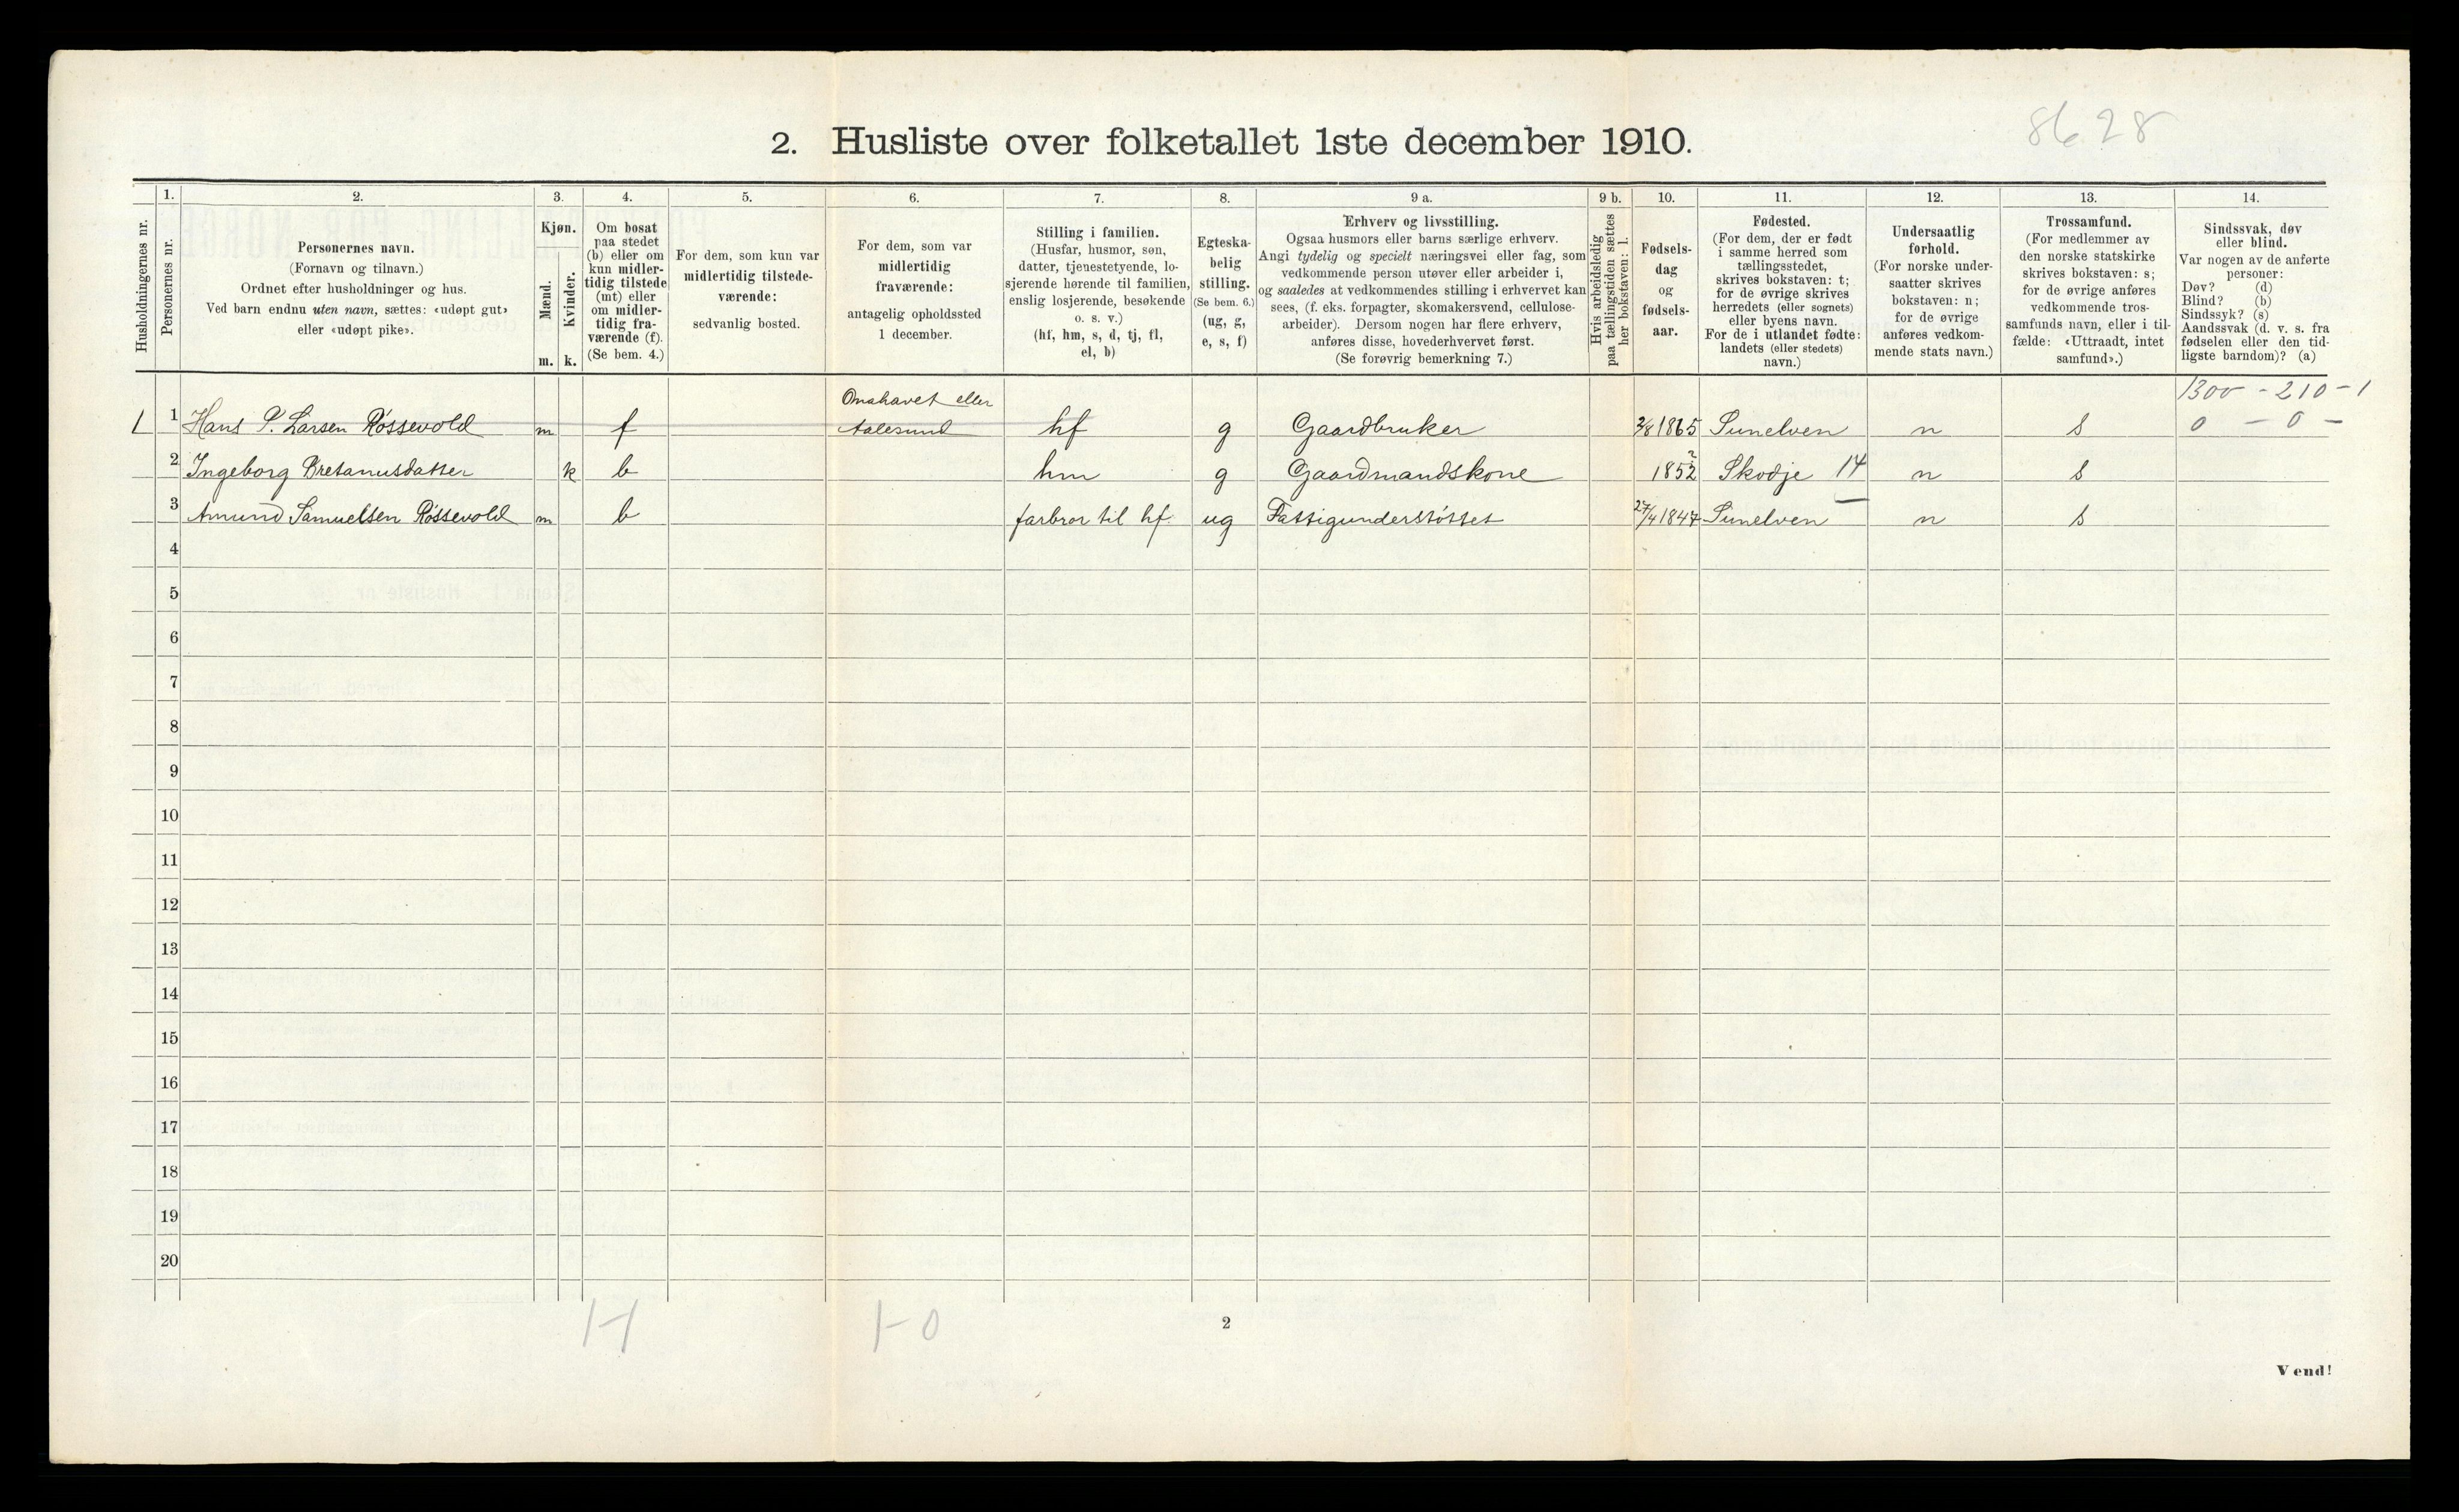 8628
2. Husliste over folketallet 1ste december 1910.
Husholdningernes nr.
1.
Personernes nr.
2.
Personernes navn.
(Fornavn og tilnavn.)
Ordnet efter husholdninger og hus.
Ved barn endnu uten navn, sættes: «udøpt gut»
eller «udøpt pike».
3.
Kjøn.
Mænd.
Kvinder.
m. k.
4.
Om bosat
paa stedet
(b) eller om
kun midler-
tidig tilstede
(mt) eller
om midler-
tidig fra-
værende (f).
(Se bem. 4.)
5.
For dem, som kun var
midlertidig tilstede-
værende:
sedvanlig bosted.
6.
For dem, som var
midlertidig
fraværende:
antagelig opholdssted
1 december.
7.
Stilling i familien.
(Husfar, husmor, søn,
datter, tjenestetyende, lo-
sjerende hørende til familien,
enslig losjerende, besøkende
o. s. v.)
(hf, hm, s, d, tj, fl,
el, b)
8.
Egteska-
belig
stilling.
(Se bem. 6.)
(ug, g,
e, s, f)
9 a.
Erhverv og livsstilling.
Ogsaa husmors eller barns særlige erhverv.
Angi tydelig og specielt næringsvei eller fag, som
vedkommende person utøver eller arbeider i,
og saaledes at vedkommendes stilling i erhvervet kan
sees, (f. eks. forpagter, skomakersvend, cellulose-
arbeider). Dersom nogen har flere erhverv,
anføres disse, hovederhvervet først.
(Se forøvrig bemerkning 7.)
9 b.
Hvis arbeidsledig
paa tællingstiden sættes
her bokstaven: l.
10.
Fødsels-
dag
og
fødsels-
aar.
11.
Fødested.
(For dem, der er født
i samme herred som
tællingsstedet,
skrives bokstaven: t;
for de øvrige skrives
herredets (eller sognets)
eller byens navn.
For de i utlandet fødte:
landets (eller stedets)
navn.)
12.
Undersaatlig
forhold.
(For norske under-
saatter skrives
bokstaven: n;
for de øvrige
anføres vedkom-
mende stats navn.)
13.
Trossamfund.
(For medlemmer av
den norske statskirke
skrives bokstaven: s;
for de øvrige anføres
vedkommende tros-
samfunds navn, eller i til-
fælde: «Uttraadt, intet
samfund».)
14.
Sindssvak, døv
eller blind.
Var nogen av de anførte
personer:
Døv? (d)
Blind? (b)
Sindssyk? (s)
Aandssvak (d. v. s. fra
fødselen eller den tid-
ligste barndom)? (a)
1300 - 210 - 1
Onahavet eller
1 1 Hans P. Larsen Røssevold m f Aalesund hf g Gaardbruker 2/8 1865 Sunelven n s 0 - 0 -
2 Ingeborg Bretanusdatter k b hm g Gaardmandskone 1852 ? Skodje 14 n s
3 Amund Samuelsen Røssevold m b farbror til hf. ug Fattigunderstøttet 27/4 1847 Sunelven n s
4
5
6
7
8
9
10
11
12
13
14
15
16
17
18
19
20
1-1
1-0
2
Vend!